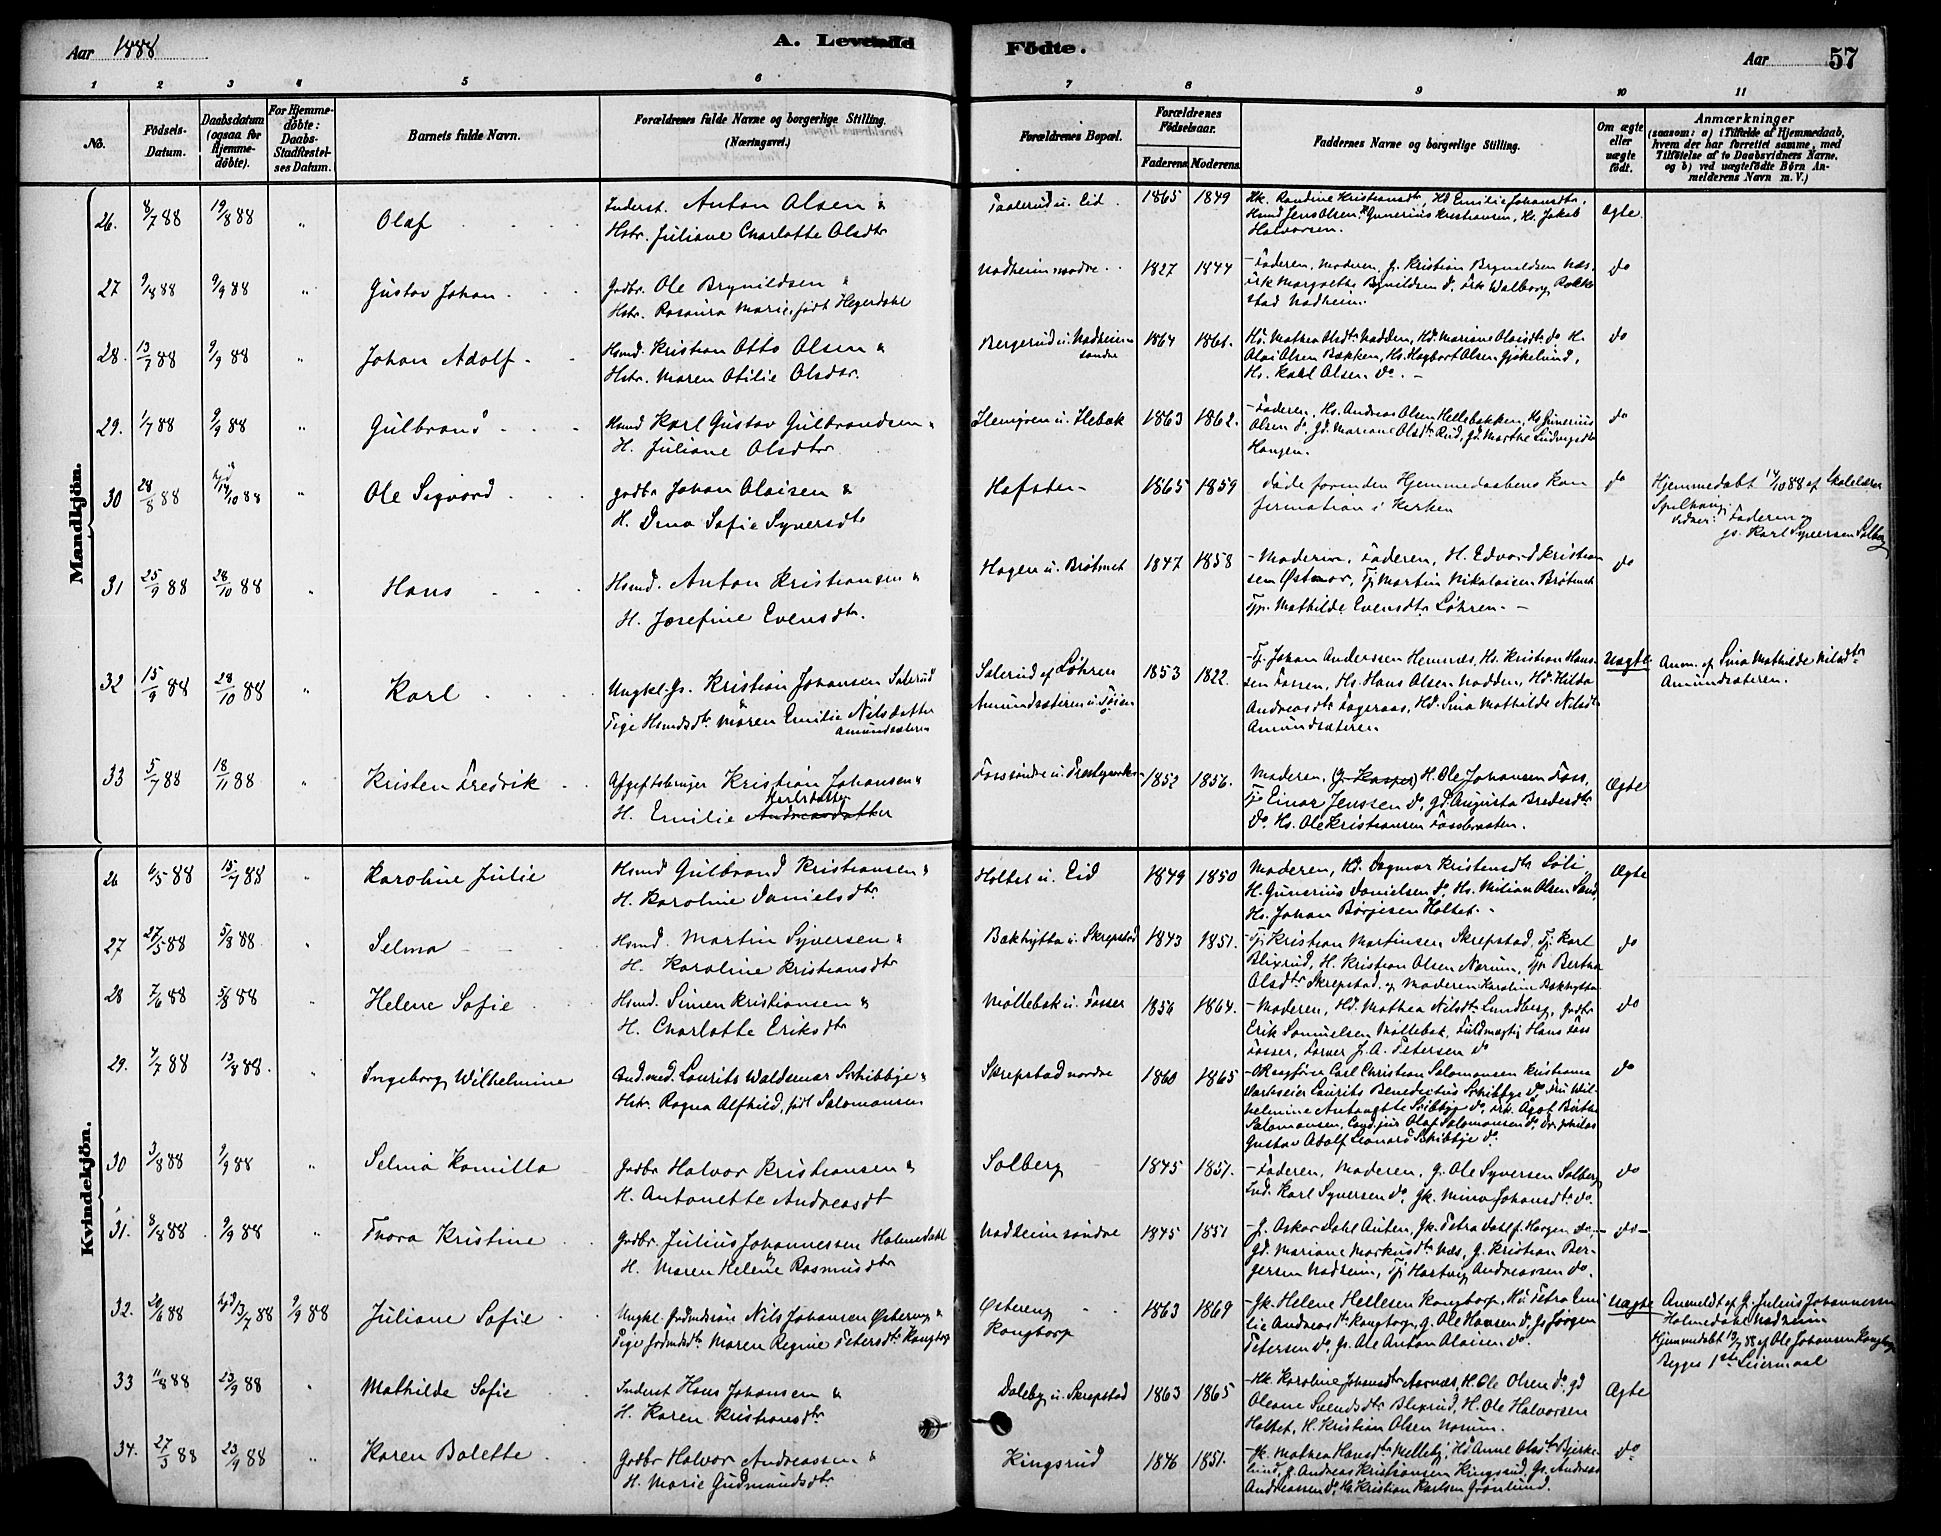 Aar 1888
A. Levende
Födte.
Aar
57
1 2 3 4 5 6 7 8 9 10 11
No.
Födsels-Datum.
Daabsdatum (ogsaa for Hjemme-döbte).
For Hjemme-döbte: Daabs-Stadfæstel-ses Datum.
Barnets fulde Navn.
Forældrenes fulde Navne og borgerlige Stilling. (Næringsvei.)
Forældrenes Bopæl.
Forældrenes Födselsaar.
Faderens. Moderens.
Faddernes Navne og borgerlige Stilling.
Om ægte eller uægte födt.
Anmærkninger
(saasom: a) i Tilfælde af Hjemmedaab,
hvem der har forrettet samme, med
Tilföielse af to Daabsvidners Navne,
og b) ved uægtefödte Börn An-
melderens Navn m. V.)
Mandkjön.
26. 8/7 88 19/8 88 " Olaf Inderst. Anton Olsen &
Hstr. Juliane Charlotte Olsdtr
Taalerud u. Eid. 1865 1849
Hk. Randine Kristiansdtr, Hd Emilie Johansdtr.
Hsmd Jens Olsen, Gunerius Kristiansen, Hs. Jakob
Halvorsen.
Ægte
27 9/8 88 9/9 88 " Gustav Johan Gødbr. Ole Brynildsen &
Hstr. Rosaura Marie, født Hegerdahl
Nadheim nordre 1827 1844
Faderen, Moderen, G. Kristian Brynildsen Næs
Frk Margrethe Brynildsen do, Frk Walborg Rakke
stad Nadheim.
do
28. 13/7 88 9/9 88 " Johan Adolf Hsmd. Kristian Otto Olsen &
Hstr. Maren Otilie Olsdtr.
Bergerud u. Nadheim søndre 1864 1861.
Hd. Mathea Olsdtr. Nadden, Hd. Mariane Olsdtr do, H.
Olai Olsen Bækken, Hs. Hagbart Olsen Gjøkelund,
Hs. Karl Olsen do.
do
29. 1/7 88 9/9 88 " Gulbrand Hsmd Karl Gustav Gulbrandsen &
H. Juliane Olsdtr
Hemgren u. Hebæk 1863 1862.
Faderen, Hs. Andreas Olsen Hellebækken, Hs Gunerius
Olsen do, Gd. Mariane Olsdtr. Rud, Gd. Marthe Ludvigsdtr
Haugen.
do
30 28/8 88 hjd 14/10 88 " Ole Sigvard Gødbr Johan Olaisen &
H. Dina Sofie Syversdtr
Hafsten 1865 1859
Døde forinden Hjemmedaabens Kon
firmation i Kirken
do
Hjemmedøbt 14/10 88 af Skolelærer
Spelhaug
Vidner: Faderen og
gs. Karl Syversen Solberg
31 25/9 88 28/10 88 " Hans Hsmd. Anton Kristiansen &
H. Josefine Evensdtr.
Hagen u. Brøtmet 1847 1858
Moderen, Faderen, H. Edvard Kristian
sen Østmor, Tj Martin Nikolaisen Brøtmet
Tp. Mathilde Evensdtr Løhren.
do
32 15/9 88 28/10 88 " Karl Ungkl. Gs. Kristian Johansen Solerud
Pige Hsmdsdtr. Maren Emilie Nilsdatter Amundsæteren
Solerud af Løhren
Amundsæteren u. Tøien
1853 1822.
Tj. Johan Anderssen Hemnæs, Hs. Kristian Han-
sen Forren, Hs. Hans Olsen Nadden, Hd. Hilda
Andreasdtr Fageraas, Hd. Sina Mathilde Nilsdtr
Amundsæteren.
Uægte
Anm. af Sina Mathilde Nilsdtr
Amundsæteren.
33 5/7 88 18/11 88 " Kristen Fredrik Afgiftsbruger Kristian Johansen &
H. Emilie Andreasdatter Karlsdatter
Foss søndre u. Prestegaarden 1852 1856.
Moderen, (G. Kasper) H. Ole Johansen Foss,
Tj. Einar Jenssen do, Gd. Augusta Bredesdtr.
do. Hs. Ole Kristiansen Fossbraaten.
Ægte
Kvindekjön.
26 6/5 88 15/7 88 " Karoline Julie Hsmd Gulbrand Kristiansen &
H. Karoline Danielsdtr.
Holtet u. Eid 1849 1850
Moderen, Hd. Dagmar Kristensdtr. Løli
H. Gunerius Danielsen do, Hs. Milian Olsen Sand,
Hs. Johan Børgesen Holtet.
Ægte
27 27/5 88 5/8 88 " Selma Hsmd. Martin Syversen &
H. Karoline Kristiansdtr
Bækhytta u. Skrepstad 1843 1851.
Tj Kristian Martinsen Skrepstad, Tj Karl
Blixrud, H. Kristian Olsen Narum, Tp. Berthe
Olsdtr. Skrepstad og Moderen Karoline Bækhytta
do
28 7/6 88 5/8 88 " Helene Sofie Hsmd. Simen Kristiansen &
H. Charlotte Eriksdtr
Møllebæk u. Fosser 1856 1864.
Moderen, Hd. Mathea Nilsdtr. Lundberg, Gødbr
Erik Samuelsen Møllebæk, Fuldmægtig Hans Foss
Fosser, Farver J. A. Petersen do
do
29. 4/7 88 13/8 88. Ingeborg Wilhelmine Cand. med. Laurits Waldemar Schibbye &
Hstr. Ragna Alfhild, født Salomonsen
Skrepstad nordre 1860 1865
Oksagfører Carl Christian Salomonsen Kristiania
Værkseier Laurits Benedictus Schibbye do, Fru Wil-
helmine Antonette Schibbye do, Frk. Agot Birthe
Salomonsen, Cand. jur. Olaf Salomonsen do, Dr. philos
Gustav Adolf Leonard Schibbye do.
do
30 3/8 88 9/9 88 " Selma Kamilla Gødbr Halvor Kristiansen &
H. Antonette Andreasdt
Solberg 1845 1851.
Faderen, Moderen, G. Ole Syversen Solberg
Ind. Karl Syversen do, Gk. Mina Johansdtr do.
do
31. 8/8 88 9/9 88 " Thora Kristine Gødbr. Julius Johannessen Holmedahl
H. Maren Helene Rasmusdtr
Nadheim søndre 1845 1851
G. Oskar Dahl Auten, Gk. Petra Detlf. Horgen do,
Gd. Mariane Markusdtr. Næs, G. Kristian Ber-
gersen Nadheim, Tj Hartvig Andreassen do.
do
32. 20/6 88 hjd 13/7 88 9/9 88 Juliane Sofie Ungkl. Gødmdssøn Nils Johansen Østereng &
Pige Gødmdsdtr. Maren Regine Petersdtr. Kongtorp
Østereng
Kongtorp
1863 1869
Gk. Helene Hellesen Kongtorp, Hd. Petra Emi
lie Andreasdtr. Kongtorp, G. Ole Hansen do, Gs. Jørgen
Petersen do, Gs. Ole Anton Olaisen do.
Uægte
Anmeldt af G. Julius Johannessen
Holmedahl Nadheim
Hjemmedøbt 13/7 88 af Ole Johansen Kongtorp
Begges 1ste Leiermaal
33 11/8 88 23/9 88 " Mathilde Sofie Inderst Hans Johansen &
H. Karen Kristiansdtr.
Daleby u. Skrepstad 1863 1865
Hk. Karoline Johansdtr. Aarnæs, H. Ole Olsen do. Gd
Oleane Svendsdtr Blixrud, H. Ole Halvorsen
Holtet, H. Kristian Olsen Narum.
Ægte
34. 27/3 88 23/9 88 " Karen Bolette Gødbr Halvor Andreassen &
H. Marie Gudmundsdtr.
Kingsrud 1846 1851.
Gk. Mathea Hansdtr. Melleby, Hd Anne Olsdtr. Bjerke-
lund, G. Andreas Kristiansen Kingsrud, Gs. Andreas
Andreassen do, Hs. Kristian Karlsen Grønlund.
do